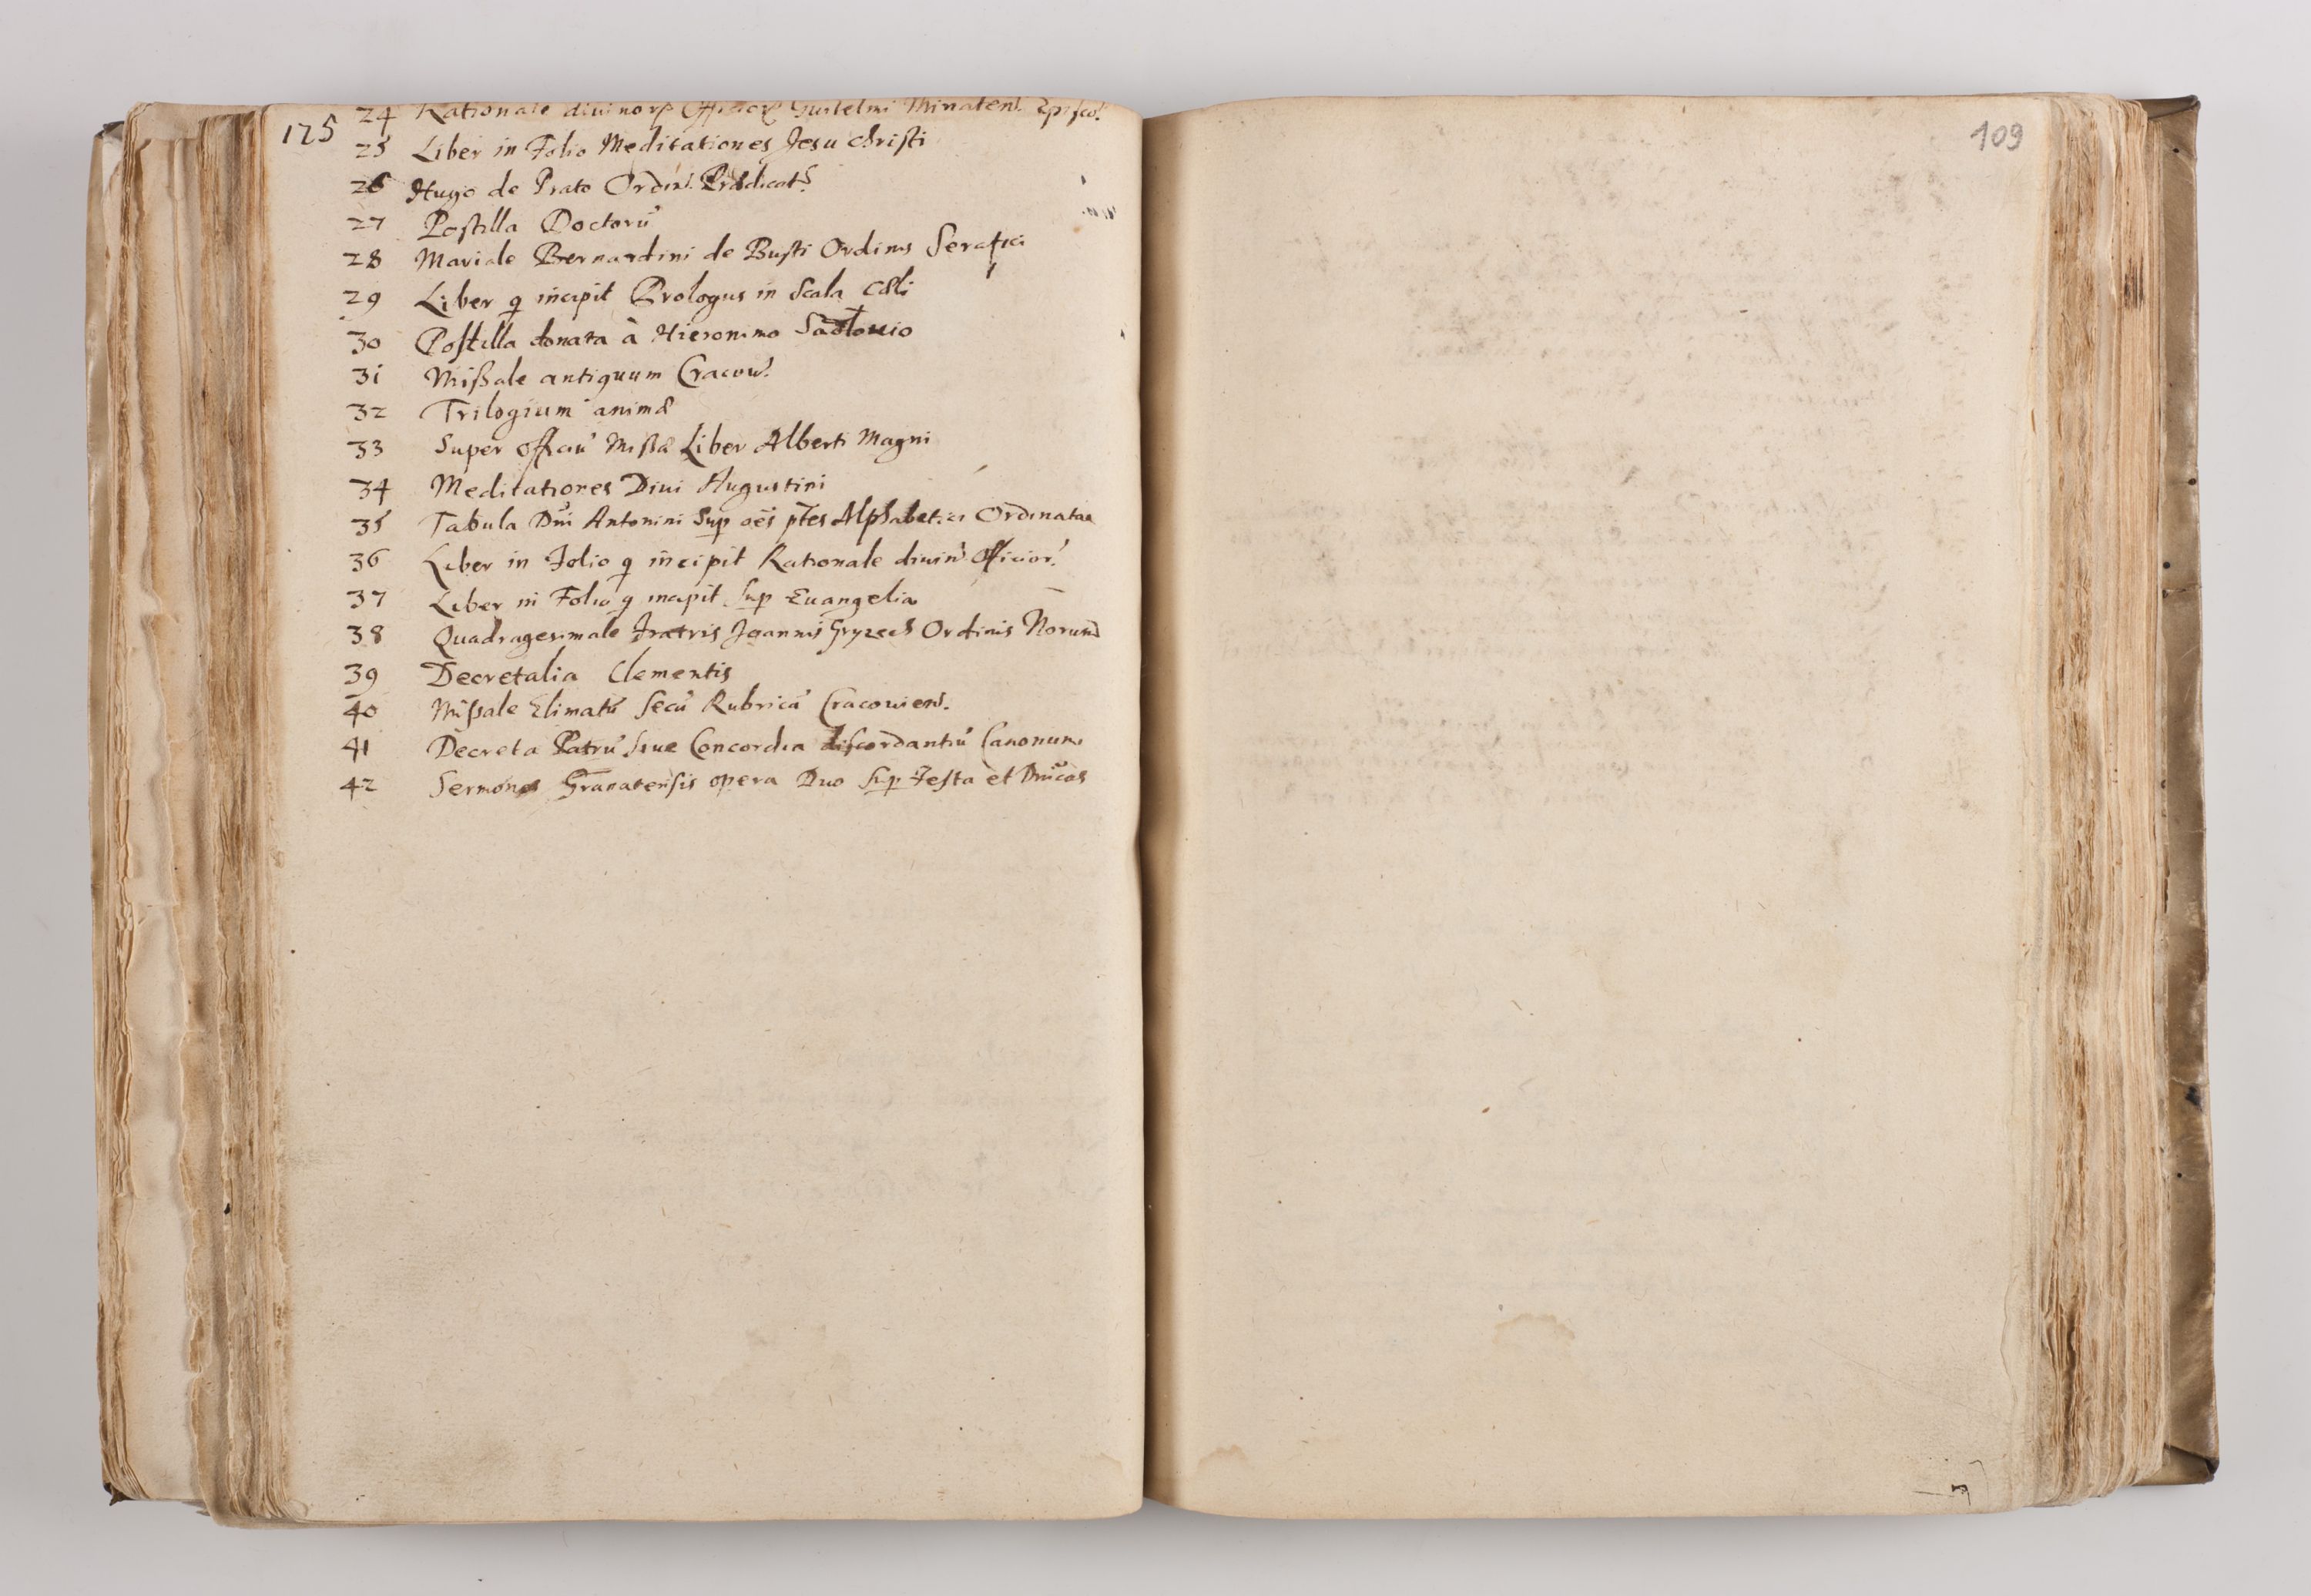 175
24 Rationale diuinorū Officiorū Guilelmi Minaten. Episco.
25 Liber in Folio Meditationes Jesu Christi
26 Hugo de Prato Ordin. Prædicat.
27 Postilla Doctorū
28 Mariale Bernardini de Busti Ordinis Serafici
29 Liber q incipit Prologus in Scala Cæli
30 Postilla donata à Hieronimo
31 Missale antiquum Cracou.
32 Trilogium animæ
33 Super officiū Missæ Liber Alberti Magni
34 Meditationes Diui Augustini
35 Tabula Dni Antonini Sup oēs ptes Alphabetici Ordinatae
36 Liber in Folio q incipit Rationale diuin. Officior.
37 Liber in Folio q incipit Sup Euangelia
38 Quadragesimale Fratris Joannis Ordinis
39 Decretalia Clementis
40 Missale Elimatū Secū Rubricā Cracouien.
41 Decreta Patrū siue Concordia discordantiū Canonum
42 Sermones Granatensis opera Duo Sup Festa et Dnicas
109